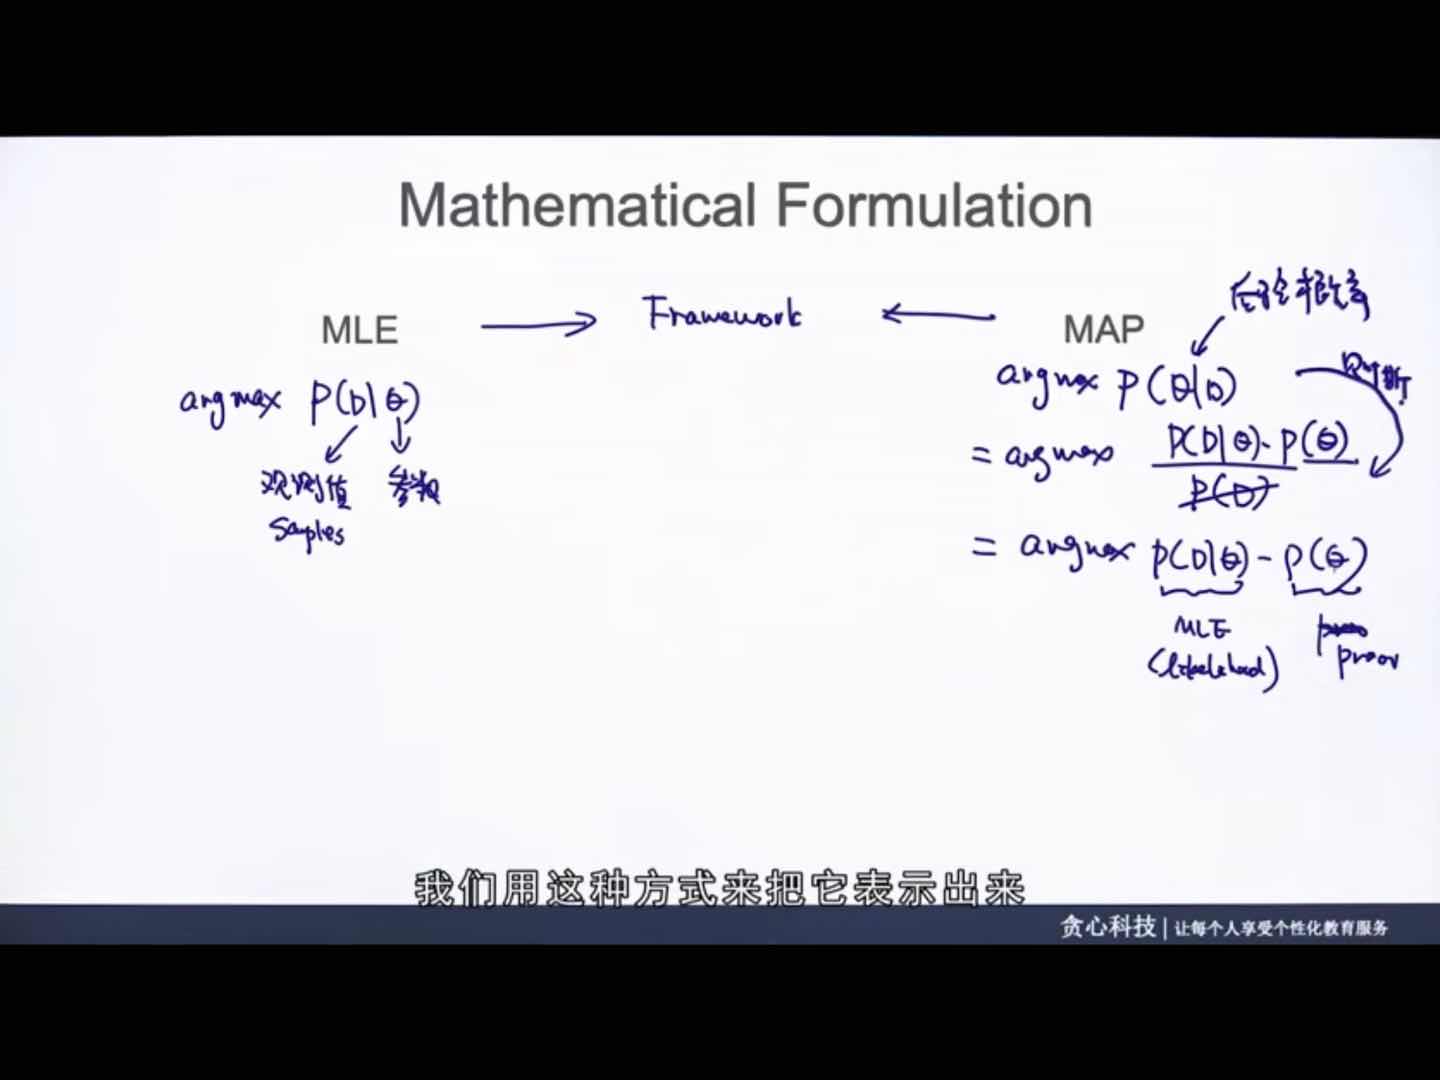 Mathematical Formulation
MLE
Framework
MAP
后验概率
argmax P(D|θ)
观测值
参数
Samples
argmax P(θ|D)
= argmax P(D|θ)·P(θ)
P(D)
= argmax P(D|θ)-P(θ)
MLE
(likelihood)
prior
我们用这种方式来把它表示出来
贪心科技 | 让每个人享受个性化教育服务